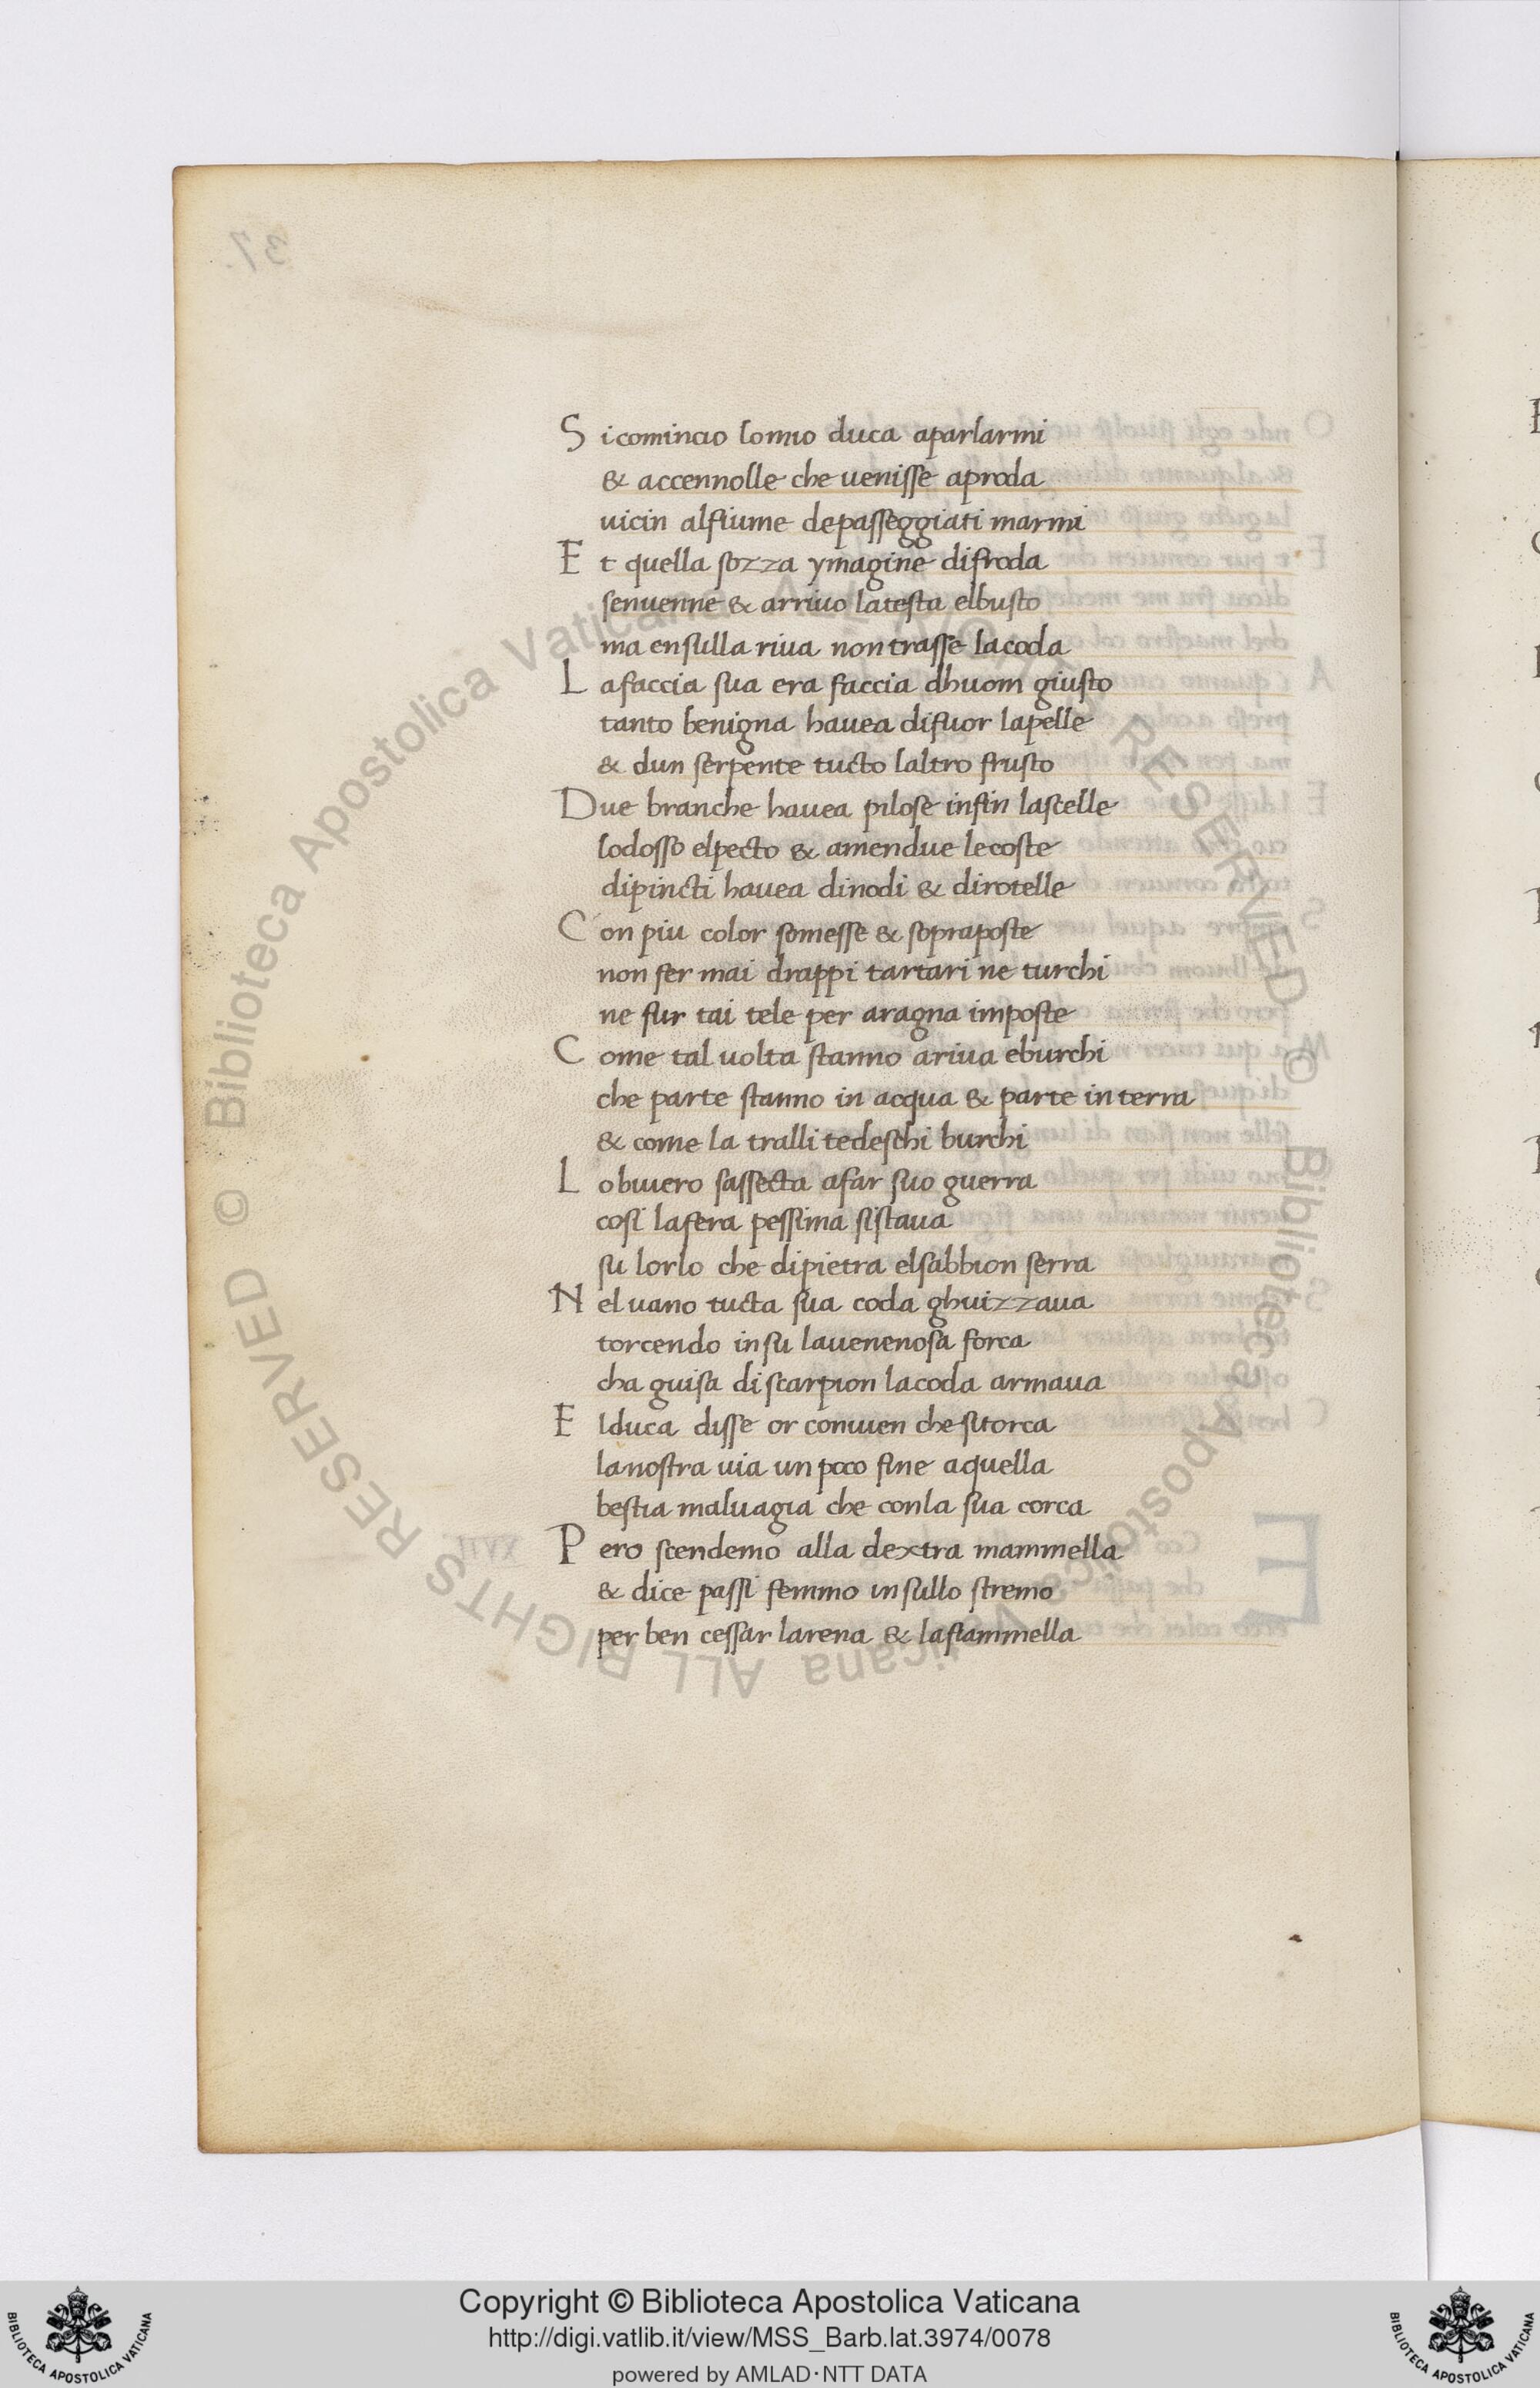 S icomincio lomio duca aparlarmi
& accennolle che uenisse aproda
uicin alfiume depasseggiati marmi
E t quella sozza ymagine difroda
senuenne & arriuo latesta elbusto
ma ensulla riua non trasse lacoda
L afaccia sua era faccia dhuom giusto
tanto benigna hauea difuor lapelle
& dun serpente tucto laltro frusto
Due branche hauea pilose infin lascelle
lodosso elpecto & amendue lecoste
dipincti hauea dinodi & dirotelle
C on piu color somesse & sopraposte
non fer mai drappi tartari ne turchi
ne fur tai tele per aragna imposte
C ome tal uolta stanno ariua eburchi
che parte stanno in acqua & parte in terra
& come la tralli tedeschi burchi
L obiuero sassecta afar suo guerra
cosi lafera pessima sistaua
su lorlo che dipietra elsabbion serra
N el uano tucta sua coda ghuizzaua
torcendo insu lauenenosa forca
cha guisa discarpion lacoda armaua
E lduca disse or conuien che sitorca
lanostra uia un poco fine aquella
bestia maluagia che conla sua corca
P ero scendemo alla dextra mammella
& dice passi femmo insullo stremo
per ben cessar larena & lafiammella
37
© Biblioteca Apostolica Vaticana ALL RIGHTS RESERVED © Biblioteca Apostolica Vaticana ALL RIGHTS RESERVED
Copyright © Biblioteca Apostolica Vaticana
http://digi.vatlib.it/view/MSS_Barb.lat.3974/0078
powered by AMLAD·NTT DATA
BIBLIOTECA APOSTOLICA VATICANA
BIBLIOTECA APOSTOLICA VATICANA